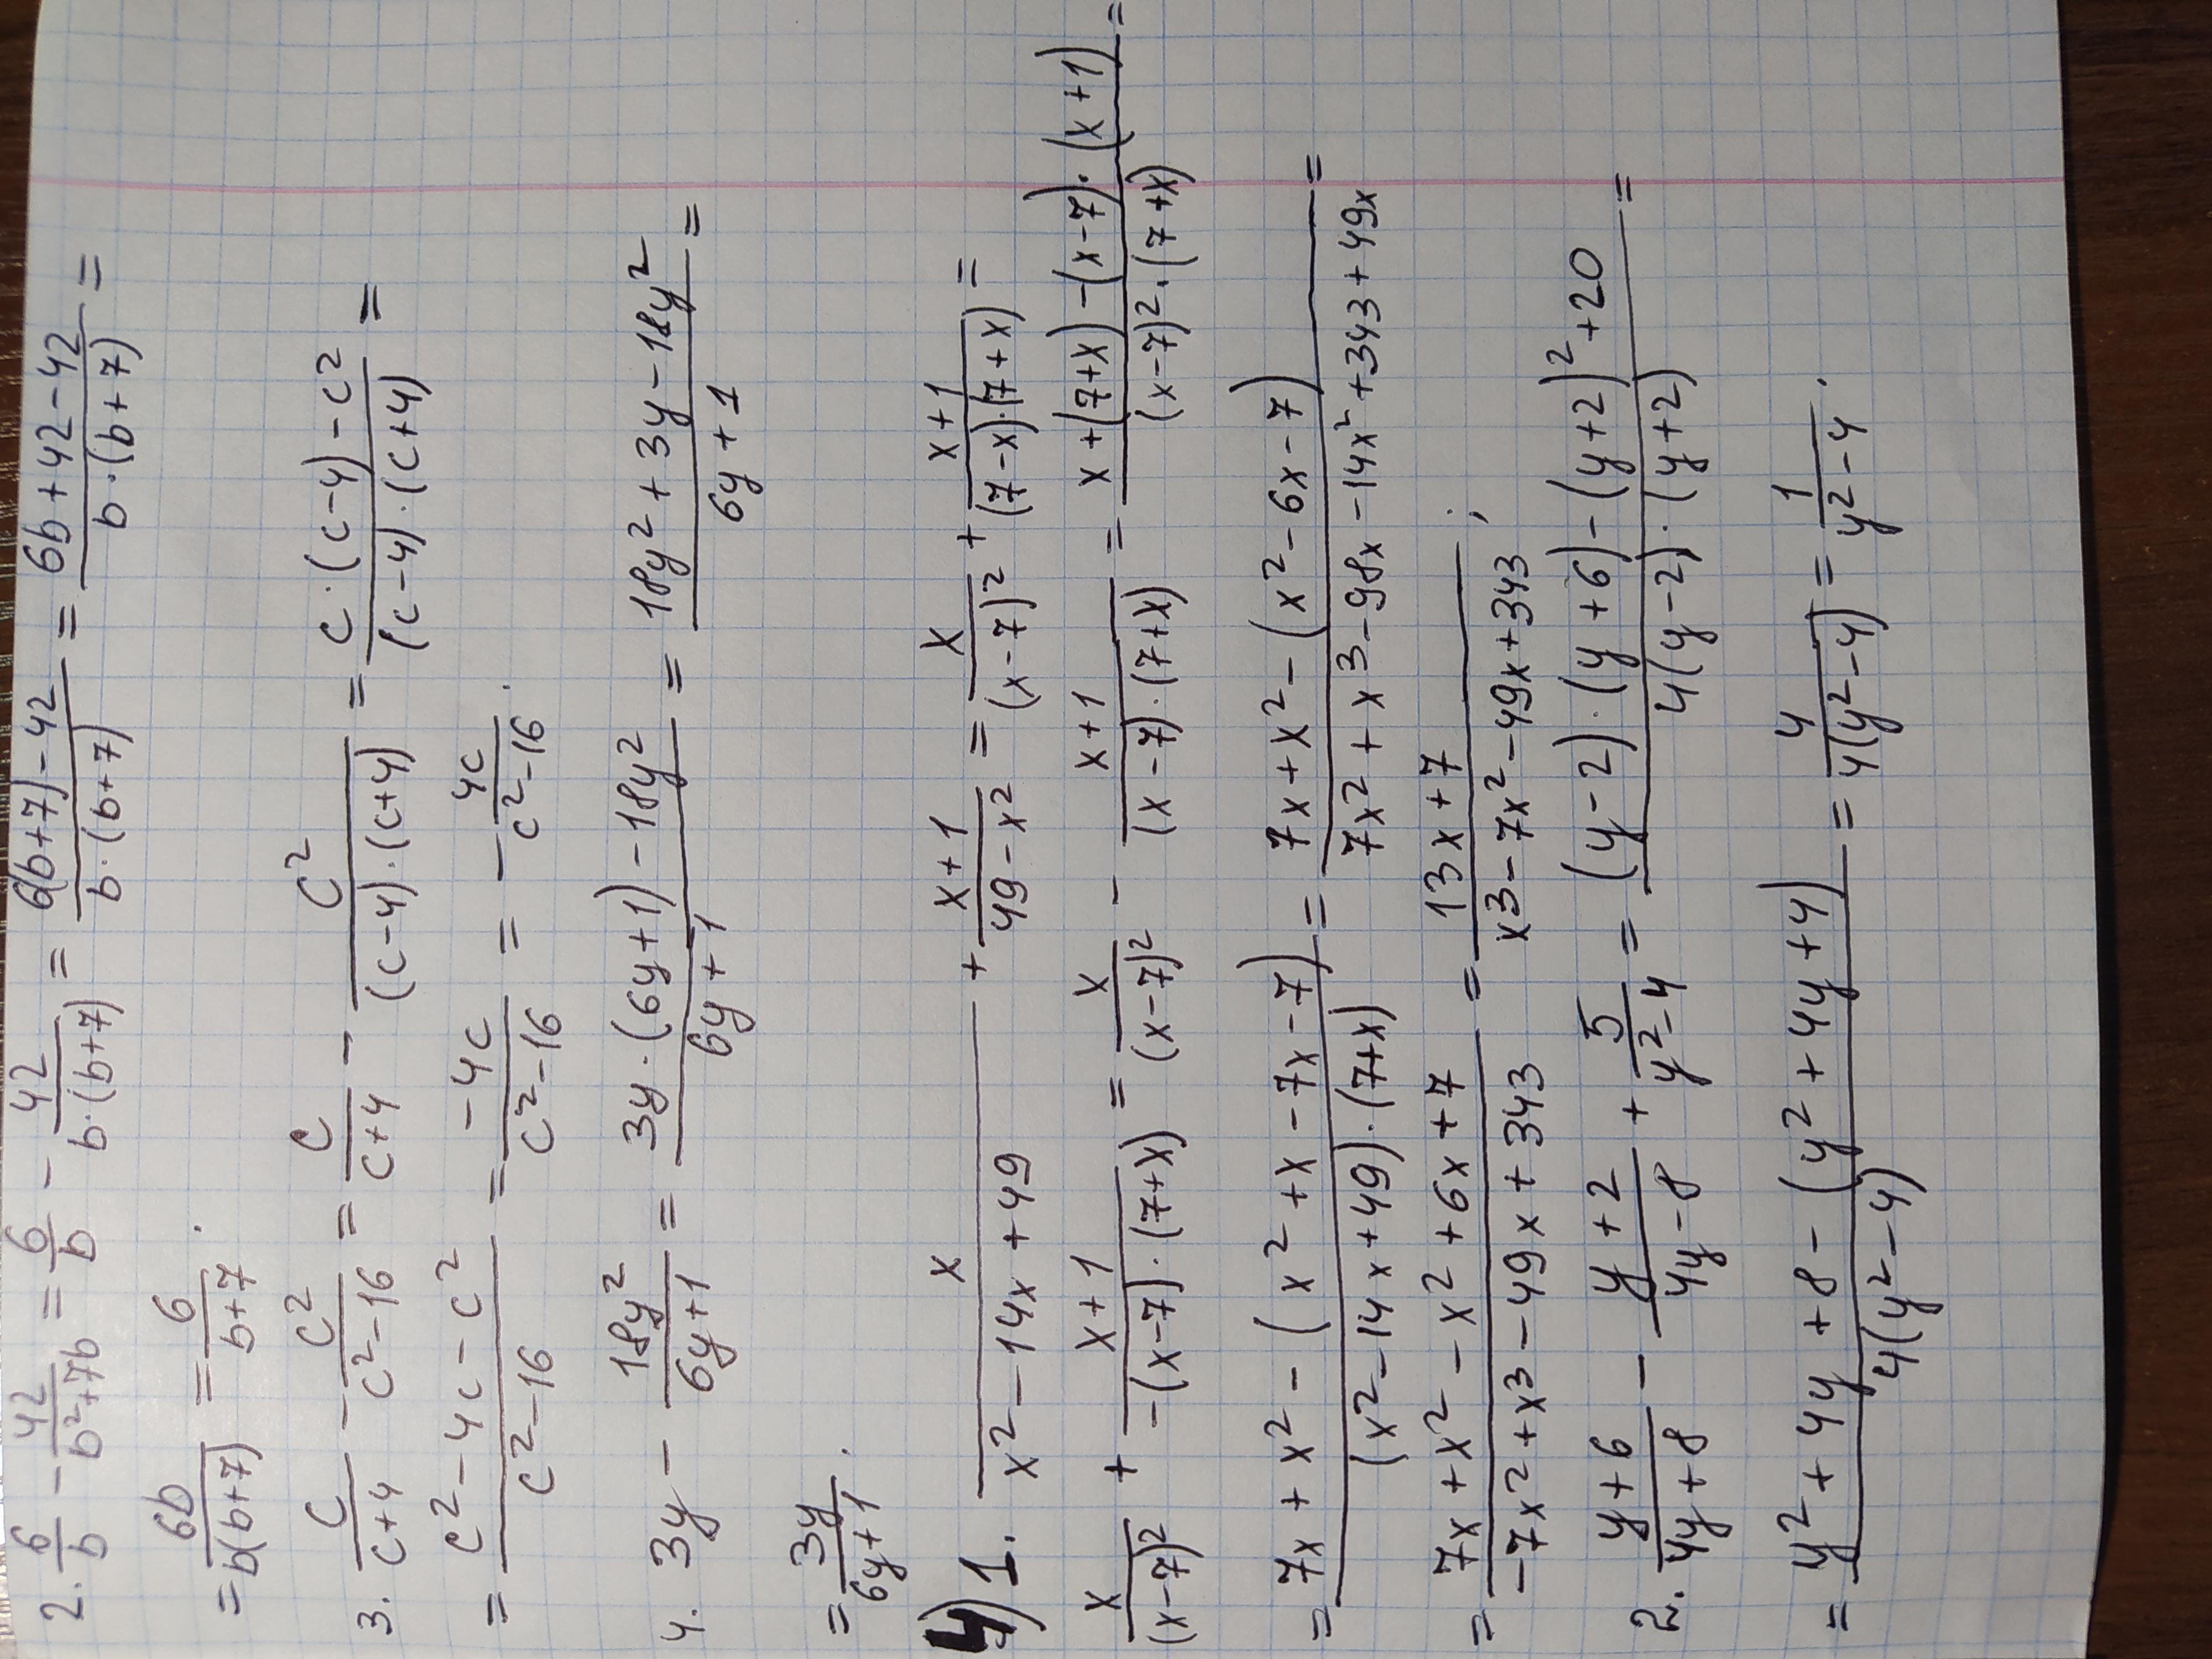 2. 6/b - 42/(b²+7b) = 6/b - 42/(b·(b+7)) = (6(b+7)-42)/(b·(b+7)) = (6b+42-42)/(b·(b+7)) =
= 6b/(b(b+7)) = 6/(b+7).
3. c/(c+4) - c²/(c²-16) = c/(c+4) - c²/((c-4)·(c+4)) = (c·(c-4)-c²)/((c-4)·(c+4)) =
= (c²-4c-c²)/(c²-16) = (-4c)/(c²-16) = - 4c/(c²-16).
4. 3y - 18y²/(6y+1) = (3y·(6y+1)-18y²)/(6y+1) = (18y²+3y-18y²)/(6y+1) =
= 3y/(6y+1).
4) 1. x/(x²-14x+49) + (x+1)/(49-x²) = x/(x-7)² + (x+1)/((7-x)·(7+x)) =
x/(x-7)² + (x+1)/(-(x-7)·(7+x)) = x/(x-7)² - (x+1)/((x-7)·(7+x)) = (x+(7+x)-(x-7)·(x+1))/((x-7)²·(7+x)) =
= (7x+x²-(x²+x-7x-7))/((x²-14x+49)·(7+x)) = (7x+x²-(x²-6x-7))/(7x²+x3-98x-14x²+343+49x) =
= (7x+x²-x²+6x+7)/(-7x²+x³-49x+343) = (13x+7)/(x3-7x²-49x+343);
2. (y+6)/(4y+8) - (y+2)/(4y-8) + 5/(y²-4) = ((y-2)·(y+6)-(y+2)²+20)/(4(y-2)·(y+2)) =
= (y²+4y+8-(y²+4y+4))/(4(y²-4)) = 4/(4(y²-4)) = 1/(y²-4).